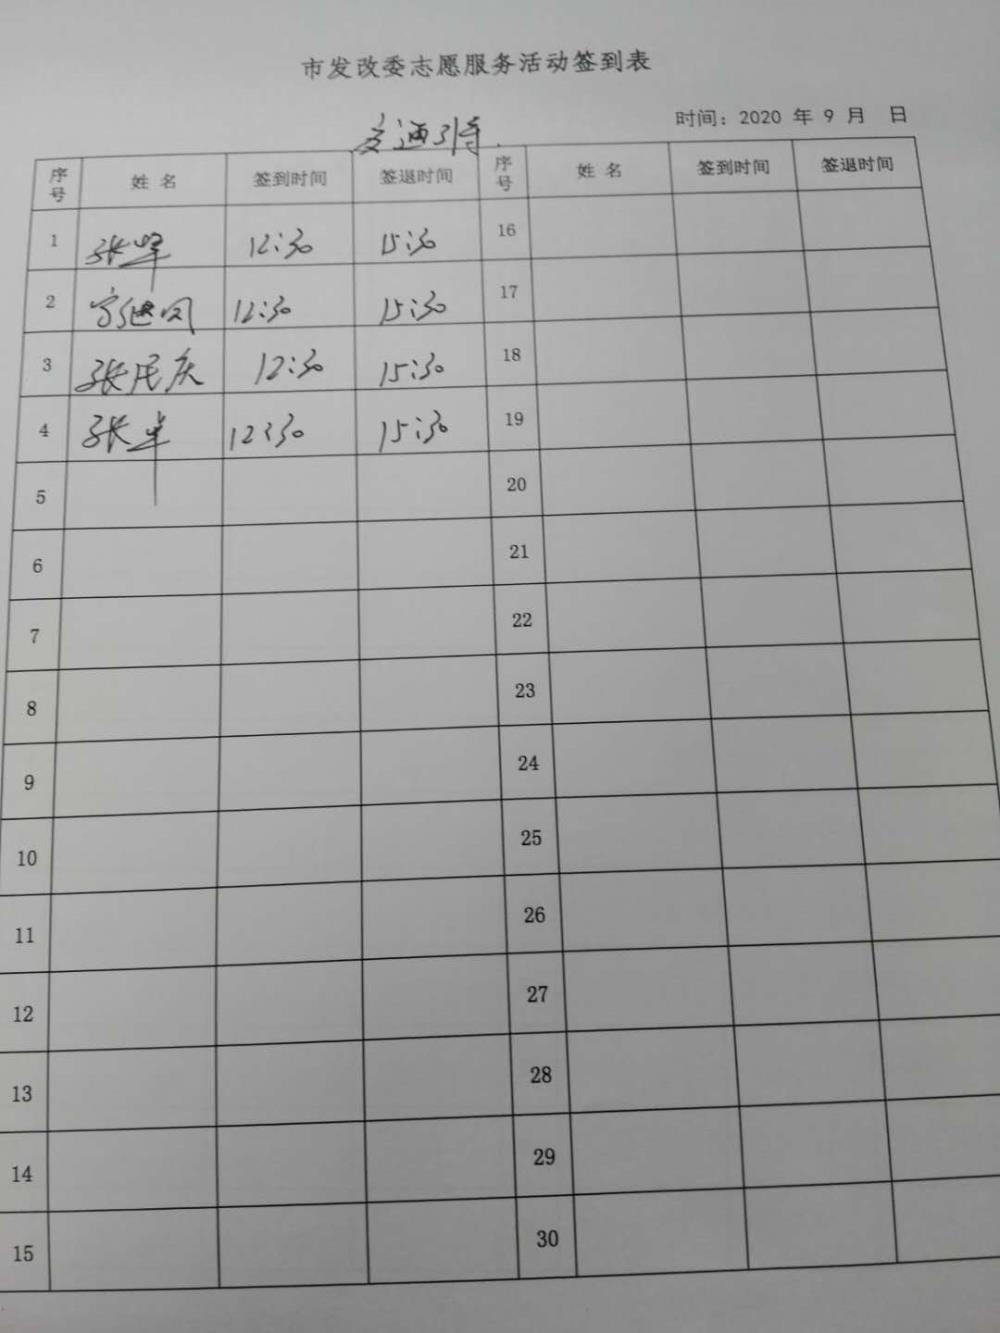 市发改委志愿服务活动签到表
时间：2020 年 9 月 日
交通引导
序号 姓名 签到时间 签退时间 序号 姓名 签到时间 签退时间
1 张军 12:30 15:30 16
2 12:30 15:30 17
3 张民庆 12:30 15:30 18
4 张军 12:30 15:30 19
5 20
6 21
7 22
8 23
9 24
10 25
11 26
12 27
13 28
14 29
15 30